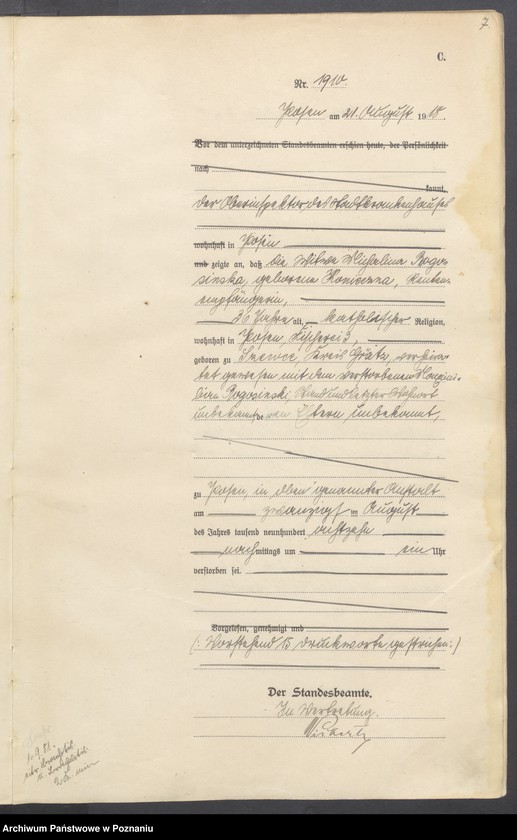 7
C.
Nr. 1910.
Posen am 21. August 1918.
Vor dem unterzeichneten Standesbeamten erschien heute, der Persönlichkeit
nach
kannt,
der Oberinspektor des Stadtkrankenhauses
wohnhaft in Posen
und zeigte an, daß die Witwe Michalina Rogo-
sinska, geborene Konieczna, Renten-
empfängerin,
Jahre alt, katholischer Religion,
wohnhaft in Posen, Fischerei 3,
geboren zu Sniewice, Kreis Grätz, verheira-
tet gewesen mit dem verstorbenen
Rogosinski, Stand und letzter Wohnort
unbekannt, Eltern unbekannt,
zu Posen, in oben genannter Anstalt
am zwanzigsten August
des Jahres tausend neunhundert achtzehn
nachmittags um ein Uhr
verstorben sei.
Vorgelesen, genehmigt und
(: Vorstehend 15 Druckworte gestrichen :)
Der Standesbeamte.
In Vertretung.
Archiwum Państwowe w Poznaniu